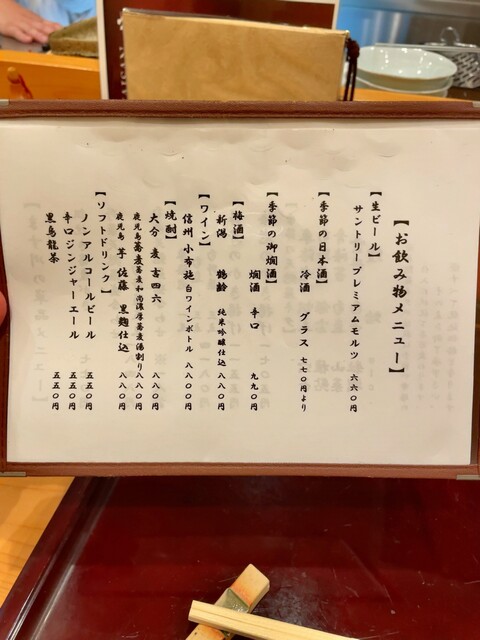 【お飲み物メニュー】
【生ビール】
サントリープレミアムモルツ 六六〇円
【季節の日本酒】
冷酒 グラス 七七〇円より
【季節の御燗酒】
燗酒 辛口 九九〇円
【梅酒】
新潟 鶴齢 純米吟醸仕込 八八〇円
【ワイン】
信州 小布施 白ワインボトル 八八〇〇円
【焼酎】
大分 麦 吉四六 八八〇円
鹿児島 蕎麦 蕎麦和尚 濃厚蕎麦湯割り 八八〇円
鹿児島 芋 佐藤 黒麹仕込 八八〇円
【ソフトドリンク】
ノンアルコールビール 五五〇円
辛口ジンジャーエール 五五〇円
黒烏龍茶 五五〇円